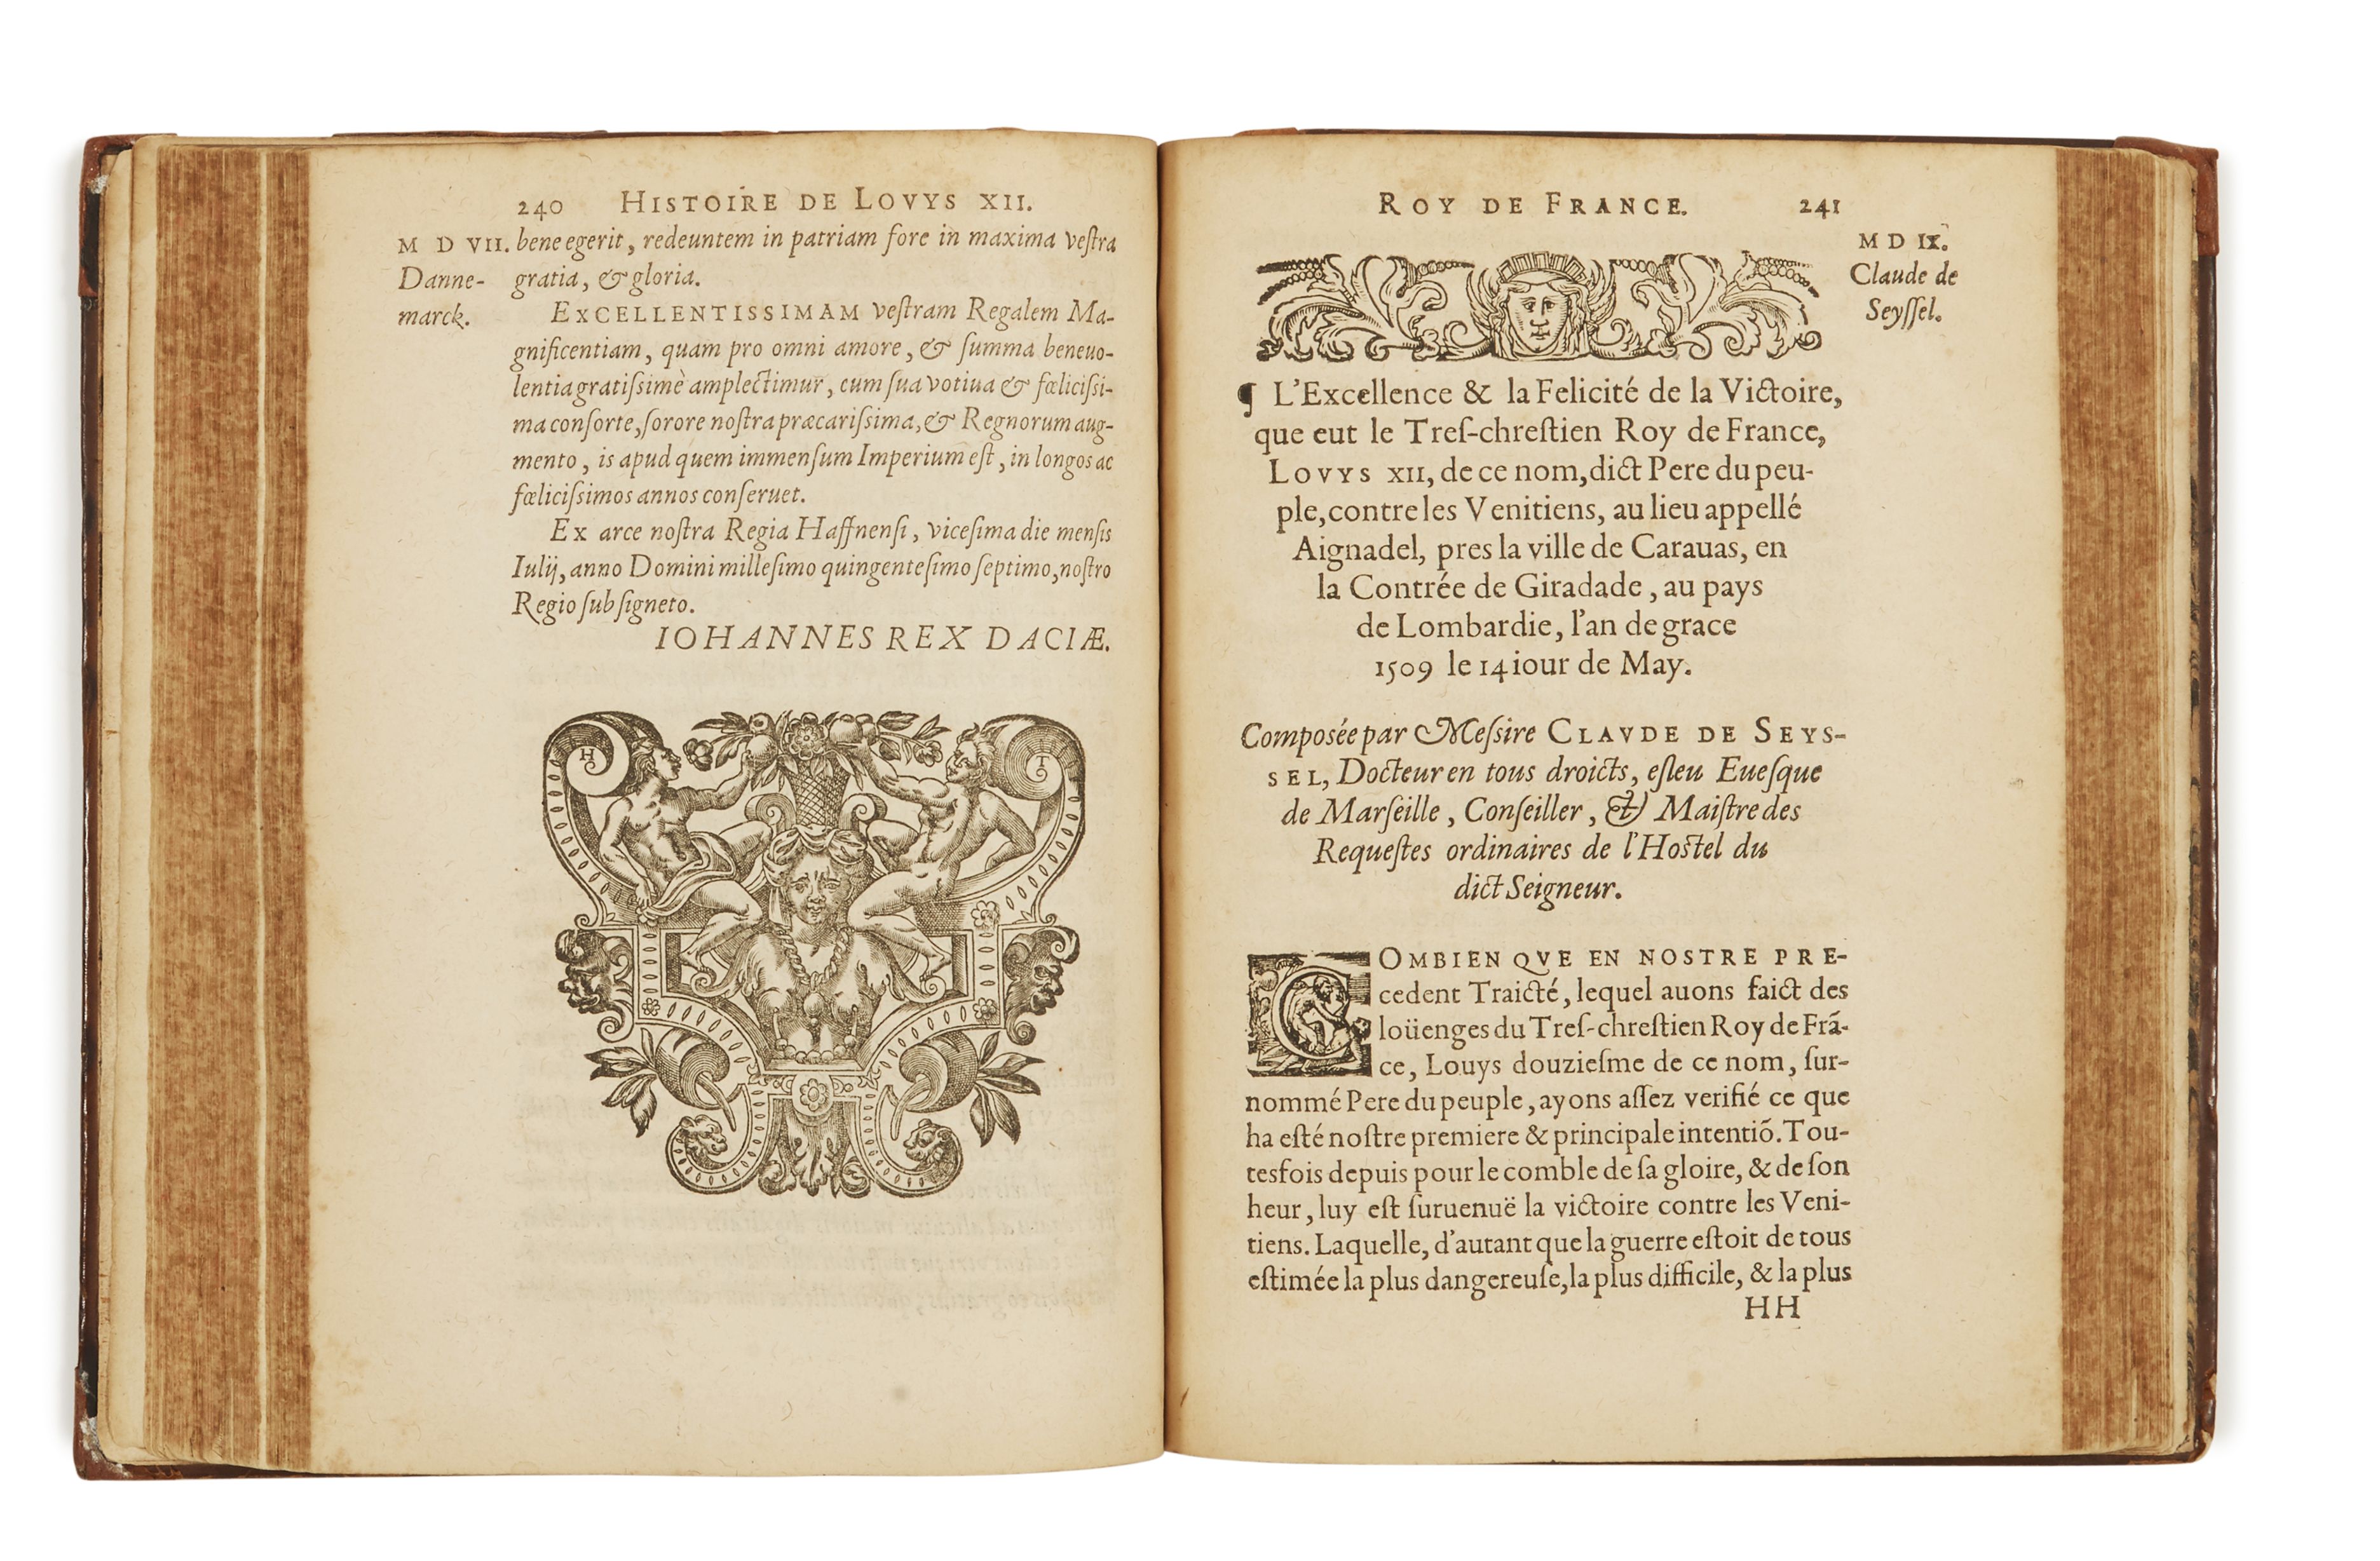 240 HISTOIRE DE LOVYS XII.
M D VII. bene egerit, redeuntem in patriam fore in maxima veſtra
Danne- gratia, & gloria.
marck. EXCELLENTISSIMAM veſtram Regalem Ma-
gnificentiam, quam pro omni amore, & ſumma beneuo-
lentia gratiſsimè amplectimur, cum ſua votiua & fœliciſsi-
ma conſorte, ſorore noſtra præcariſsima, & Regnorum aug-
mento, is apud quem immenſum Imperium eſt, in longos ac
fœliciſsimos annos conſeruet.
Ex arce noſtra Regia Haffnenſi, viceſima die menſis
Iulij, anno Domini milleſimo quingenteſimo ſeptimo, noſtro
Regio ſub ſigneto.
IOHANNES REX DACIÆ.
H T
ROY DE FRANCE. 241
M D IX.
Claude de
Seyſſel.
¶ L'Excellence & la Felicité de la Victoire,
que eut le Treſ-chreſtien Roy de France,
LOVYS XII, de ce nom, dict Pere du peu-
ple, contre les Venitiens, au lieu appellé
Aignadel, pres la ville de Carauas, en
la Contrée de Giradade, au pays
de Lombardie, l'an de grace
1509 le 14 iour de May.
Compoſée par Meſsire CLAVDE DE SEYS-
SEL, Docteur en tous droicts, eſleu Eueſque
de Marſeille, Conſeiller, & Maiſtre des
Requeſtes ordinaires de l'Hoſtel du
dict Seigneur.
COMBIEN QVE EN NOSTRE PRE-
cedent Traicté, lequel auons faict des
loüenges du Treſ-chreſtien Roy de Frã-
ce, Louys douzieſme de ce nom, ſur-
nommé Pere du peuple, ayons aſſez verifié ce que
ha eſté noſtre premiere & principale intentiõ. Tou-
tesfois depuis pour le comble de ſa gloire, & de ſon
heur, luy eſt ſuruenuë la victoire contre les Veni-
tiens. Laquelle, d'autant que la guerre eſtoit de tous
eſtimée la plus dangereuſe, la plus difficile, & la plus
HH